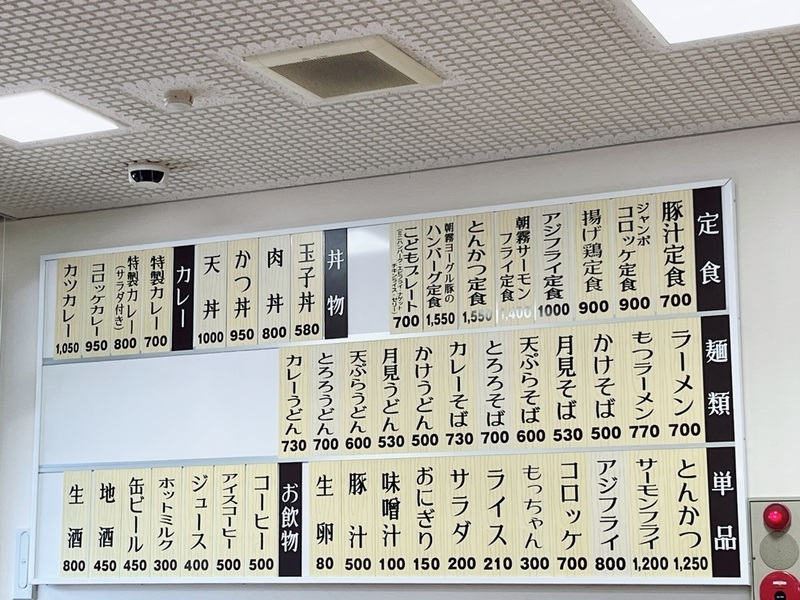 定食
豚汁定食 700
ジャンボコロッケ定食 900
揚げ鶏定食 900
アジフライ定食 1000
朝霧サーモンフライ定食 1,400
とんかつ定食 1,550
朝霧ヨーグル豚のハンバーグ定食 1,550
こどもプレート 700
丼物
玉子丼 580
肉丼 800
かつ丼 950
天丼 1000
カレー
特製カレー 700
特製カレー(サラダ付き) 800
コロッケカレー 950
カツカレー 1,050
麺類
ラーメン 700
もつラーメン 770
かけそば 500
月見そば 530
天ぷらそば 600
とろろそば 700
カレーそば 730
かけうどん 500
月見うどん 530
天ぷらうどん 600
とろろうどん 700
カレーうどん 730
単品
とんかつ 1,250
サーモンフライ 1,200
アジフライ 800
コロッケ 700
もっちゃん 300
ライス 210
サラダ 200
おにぎり 150
味噌汁 100
豚汁 500
生卵 80
お飲物
コーヒー 500
アイスコーヒー 500
ジュース 400
ホットミルク 300
缶ビール 450
地酒 450
生酒 800